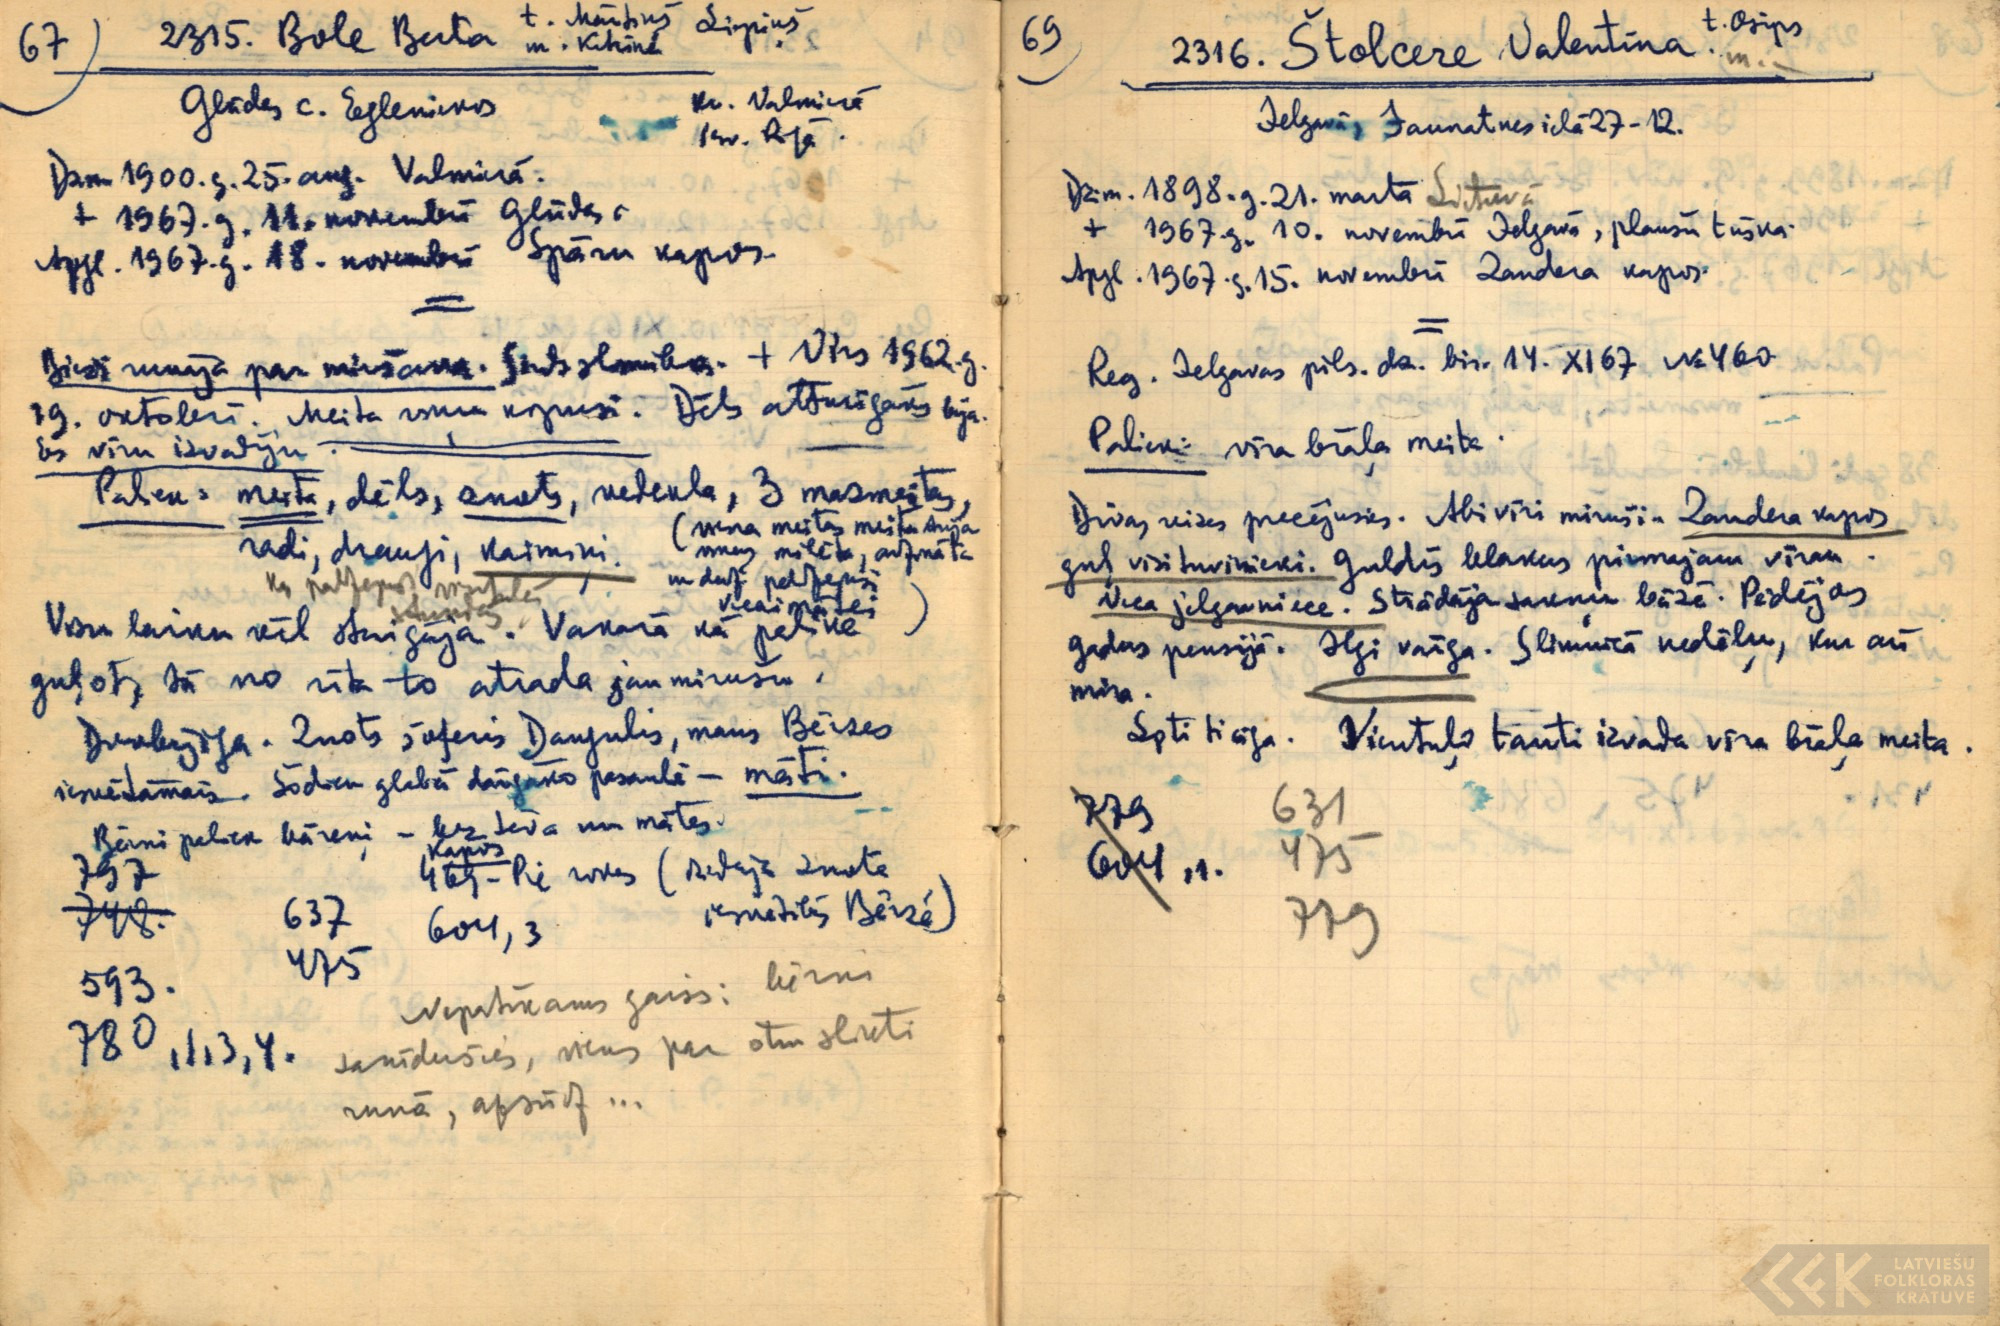 67)
2315. Bole Berta t. Mārtiņš Liepiņš
m. Katrīne
Glūdas c. Eglenieкos
kr. Valmierā
iesv. Rūjā.
Dzim 1900.g. 25. aug. Valmierā.
+ 1967.g. 11. novembrī Glūdas c
Apgl. 1967.g. 18. novembrī Spāru kapos.
=
Bieži runāja par miršanu. Sirds slimība. + Vīrs 1962.g.
19. oktobrī. Meita visur kopusi. Dēls atturīgāks bija.
Es vīru izvadīju.
Paliek: meita, dēls, znots, vedekla, 3 mazmeitas,
radi, draugi, kaimiņi.
(viena meitas meita Anija
mīlēta, audzināta
un daudz palīdzējusi
vecaimātei)
Visu laiku vēl staigāja. Vakarā kā palika
guļot, tā no rīta to atrada jau mirušu.
Draudzīga. Znots šoferis Daugulis, mans Bērzes
iesvētāmais. Šodien glabā dārgāko pasaulē - māti.
Bērni paliek bāreņi - bez tēva un mātes.
797
748.
593.
780,1,3,4.
637
475
kapos
469 - Pie rokas (dziedāja znota
iesvētībās Bērzē)
604,3
Nepatīkams gaiss: bērni
sanīdušies, viens par otru slikti
runā, apsūdz ...
69)
2316. Štolcere Valentīna t. Osips
m. -
Jelgavā, Jaunatnes ielā 27-12.
Dzim. 1898.g. 21. martā Lietuvā
+ 1967.g. 10. novembrī Jelgavā, plaušu tūska.
Apgl. 1967.g. 15. novembrī Zandera kapos.
=
Reg. Jelgavas pils. dz. bir. 14. XI 67 № 460
Paliek: vīra brāļa meita.
Divas reizes precējusies. Abi vīri miruši. Zandera kapos
guļ visi tuvinieki. Guldīs blakus pirmajam vīram.
Veca jelgavniece. Strādāja sakņu bāzē. Pēdējos
gadus pensijā. Ilgi vārga. Slimnīcā nedēļu, kur arī
mira.
Ļoti ticīga. Vientuļo tanti izvada vīra brāļa meita.
779
604,1.
631
475
779
LATVIEŠU
FOLKLORAS
KRĀTUVE